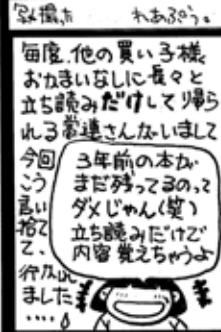 毎度、他の買い子様
おかまいなしに長々と
立ち読みだけして帰ら
れる常連さんがいまして
今回
こう
言い
捨て
て、
行かれ
ました
‥‥
3年前の本が
まだ残ってるのって
ダメじゃん(笑)
立ち読みだけで
内容覚えちゃうよ